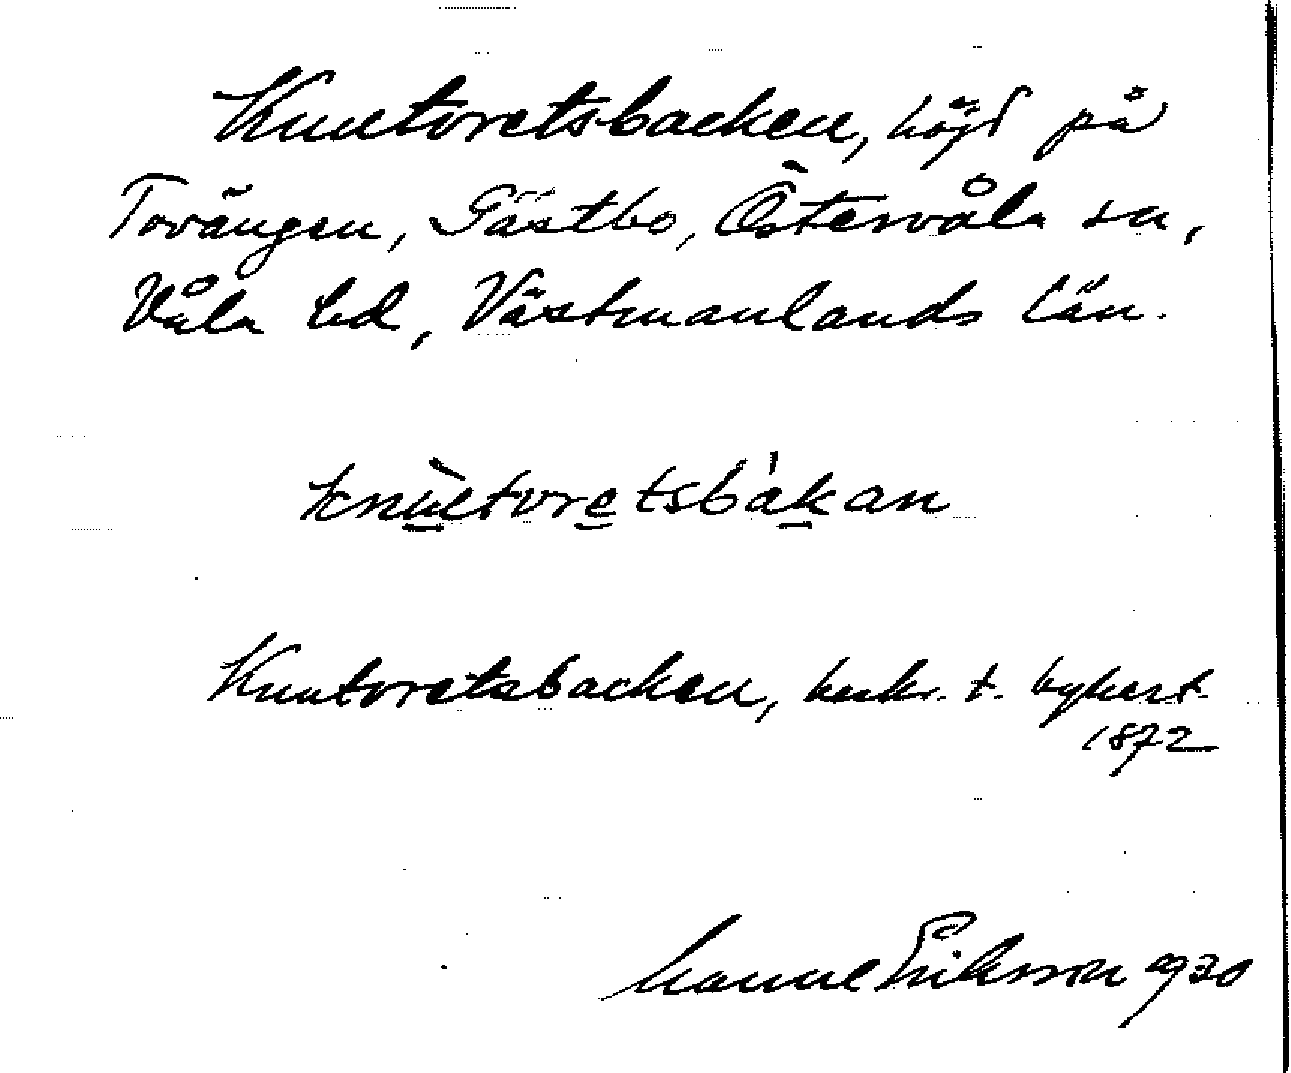 Knutoretsbacken, höjd på
Torängen, Gästbo, Östervåla sn,
Våla hd, Västmanlands län.
knutoretsbakan
Knutoretsbacken, beskr. t. bykart.
1872
Manne Eriksson 1930